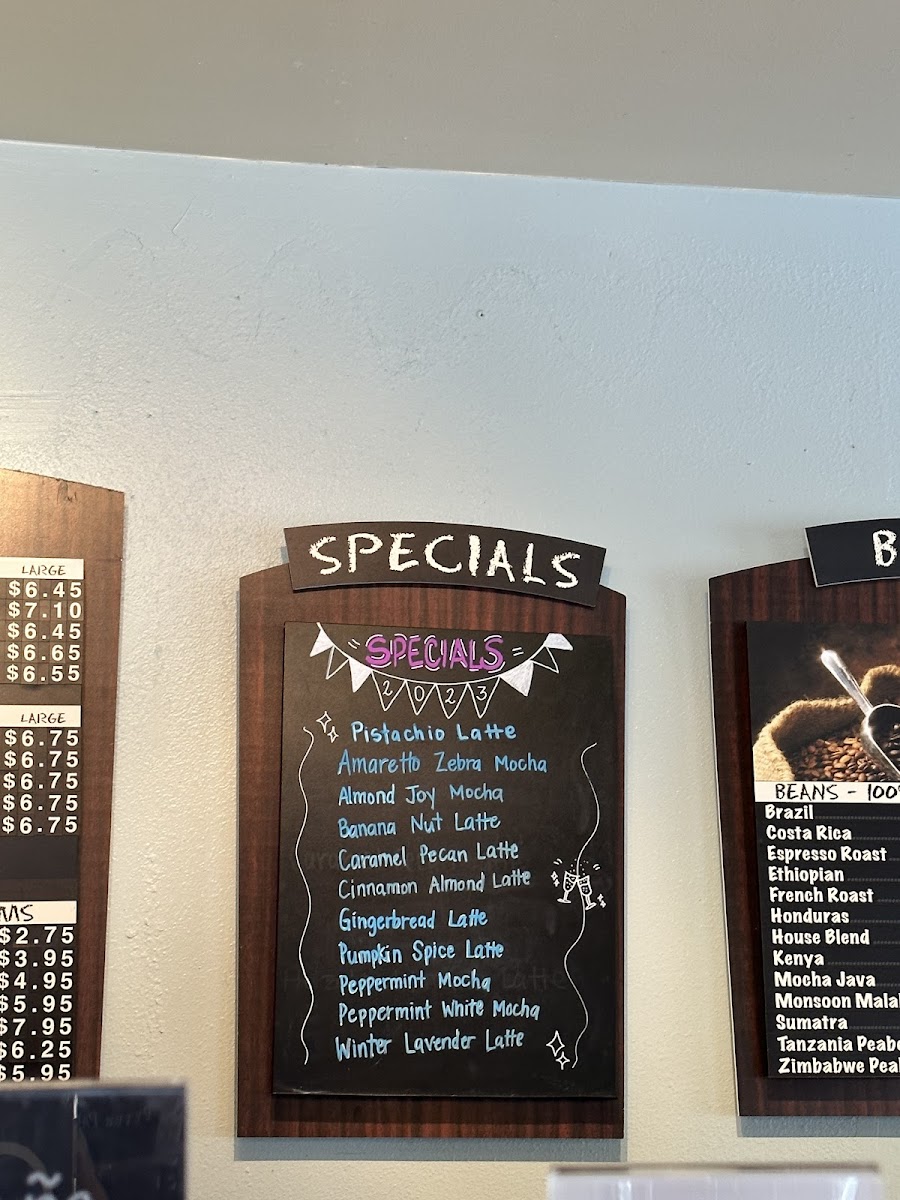 LARGE
$6.45
$7.10
$6.45
$6.65
$6.55
LARGE
$6.75
$6.75
$6.75
$6.75
$6.75
$2.75
$3.95
$4.95
$5.95
$7.95
$6.25
$5.95
SPECIALS
SPECIALS
2023
Pistachio Latte
Amaretto Zebra Mocha
Almond Joy Mocha
Banana Nut Latte
Caramel Pecan Latte
Cinnamon Almond Latte
Gingerbread Latte
Pumpkin Spice Latte
Peppermint Mocha
Peppermint White Mocha
Winter Lavender Latte
B
BEANS - 100
Brazil
Costa Rica
Espresso Roast
Ethiopian
French Roast
Honduras
House Blend
Kenya
Mocha Java
Monsoon Mala
Sumatra
Tanzania Peab
Zimbabwe Pea